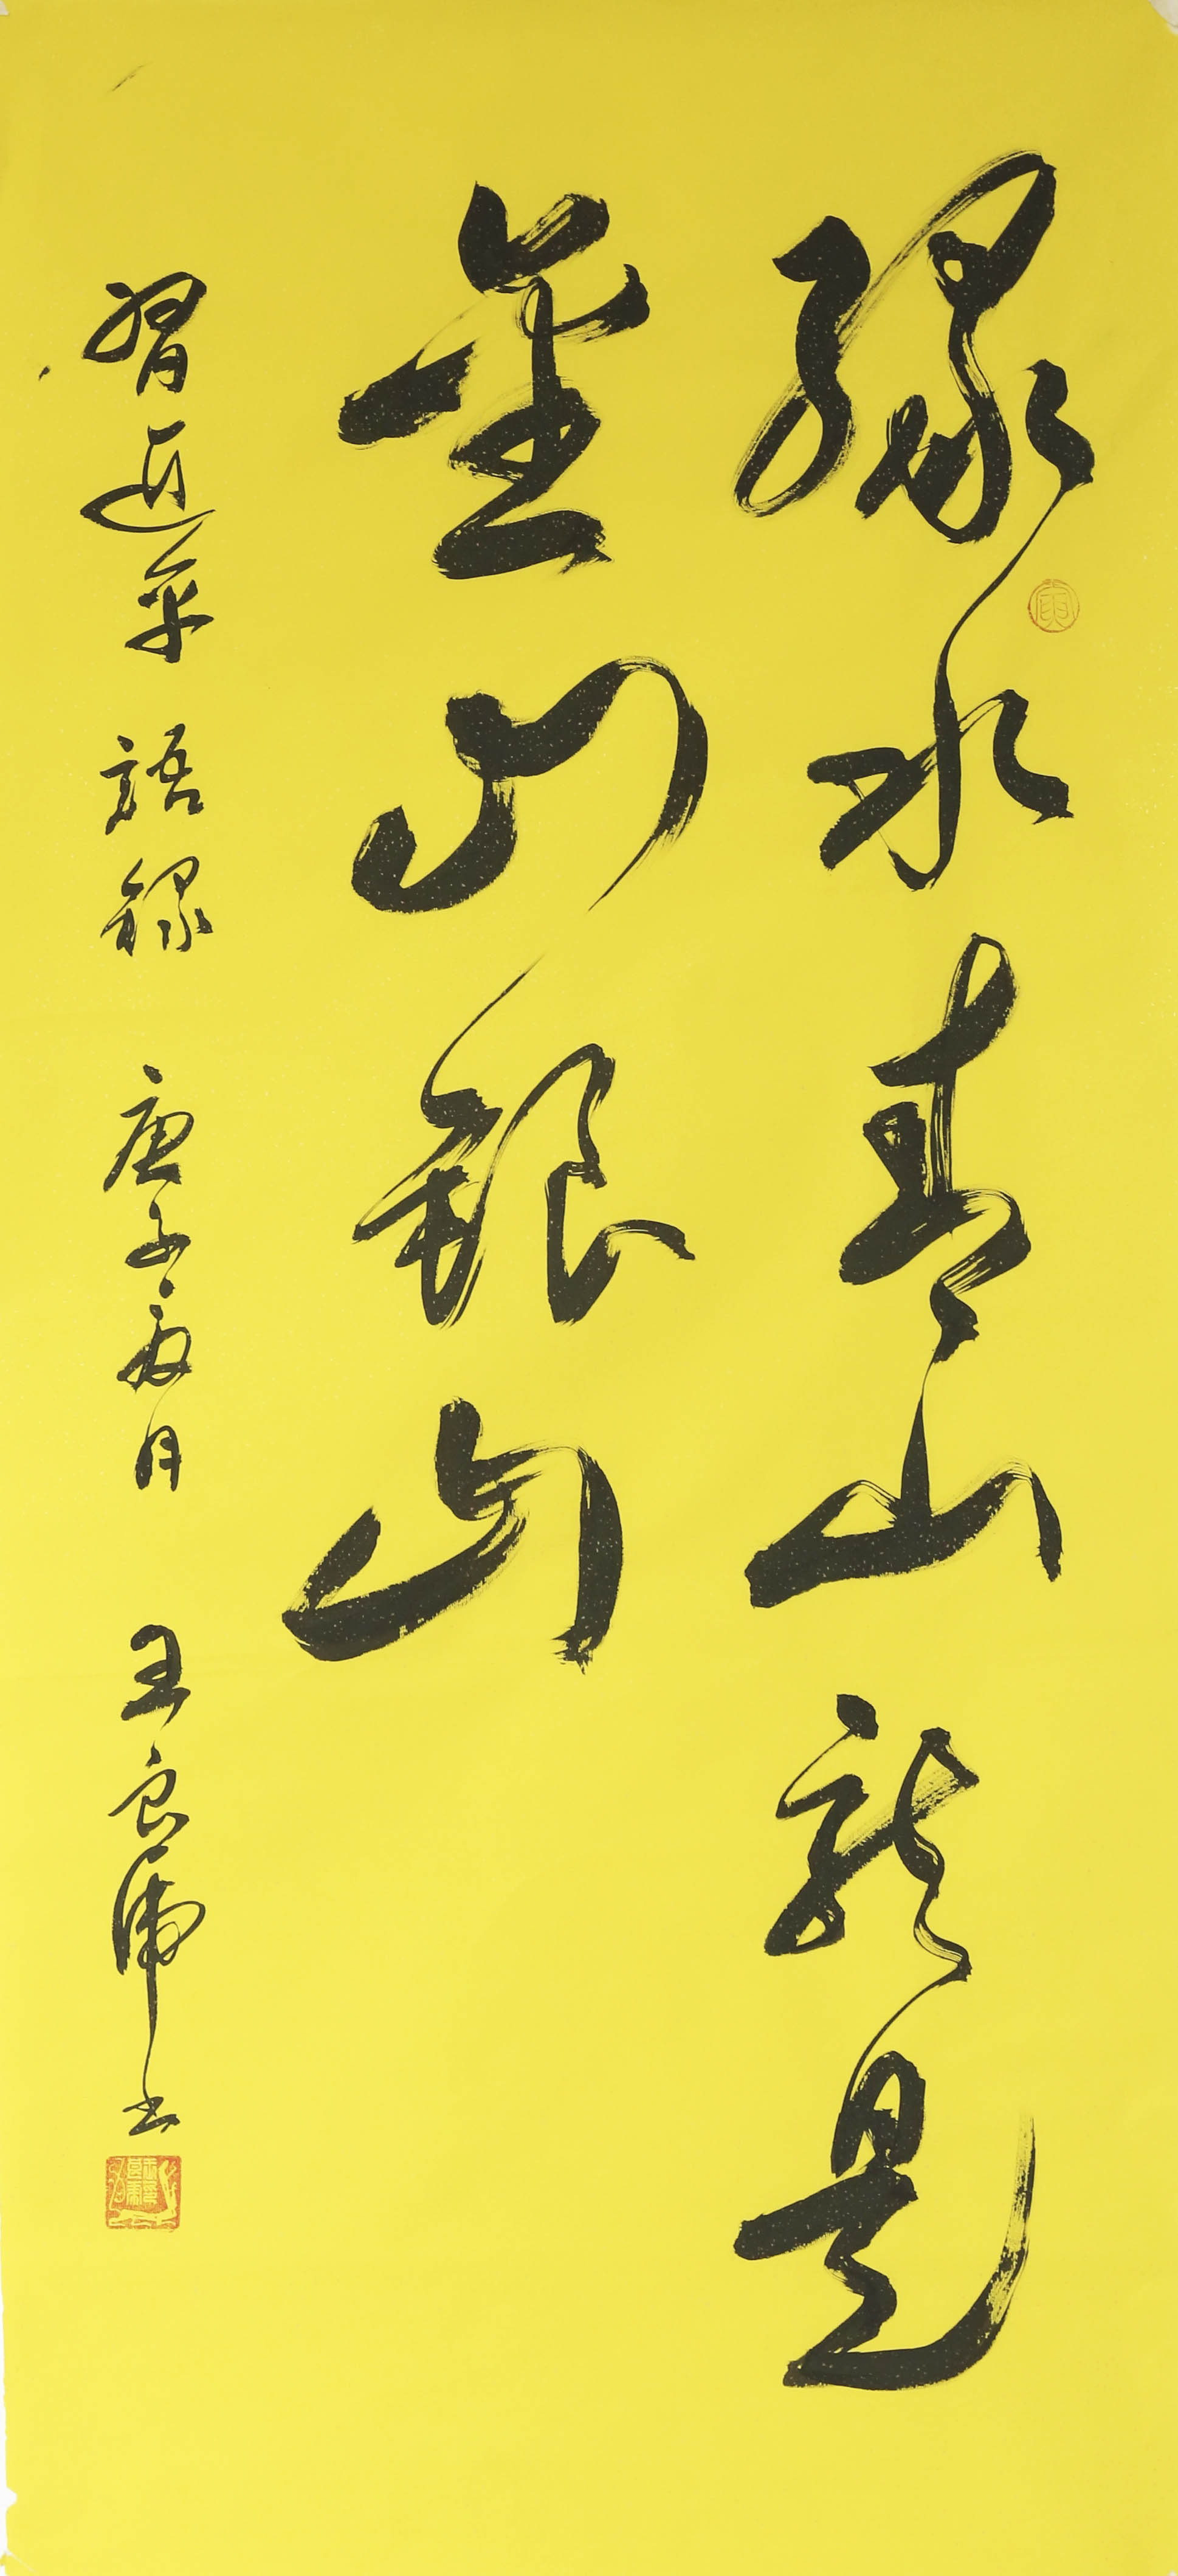 綠水青山就是
金山銀山
習近平語錄 庚子夏月 王良虎書